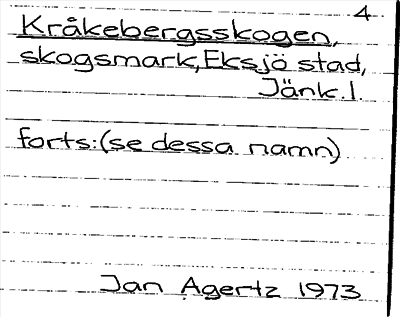 4
Kråkebergsskogen,
skogsmark, Eksjö stad,
Jänk. l.
forts: (se dessa namn)
Jan Agertz 1973